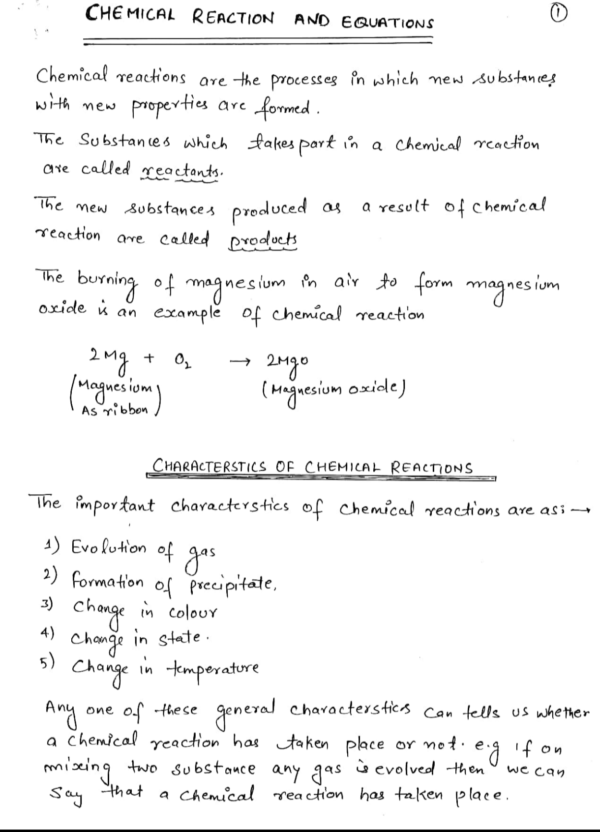 CHEMICAL REACTION AND EQUATIONS
1
Chemical reactions are the processes in which new substances
with new properties are formed.
The Substances which takes part in a chemical reaction
are called reactants.
The new substances produced as a result of chemical
reaction are called products
The burning of magnesium in air to form magnesium
oxide is an example of chemical reaction
2Mg + O2 → 2Mgo
(Magnesium As ribbon) (Magnesium oxide)
CHARACTERSTICS OF CHEMICAL REACTIONS
The important characterstics of chemical reactions are as:→
1) Evolution of gas
2) Formation of precipitate,
3) Change in colour
4) Change in state.
5) Change in temperature
Any one of these general characterstics can tells us whether
a chemical reaction has taken place or not. e.g If on
mixing two substance any gas is evolved then we can
say that a chemical reaction has taken place.